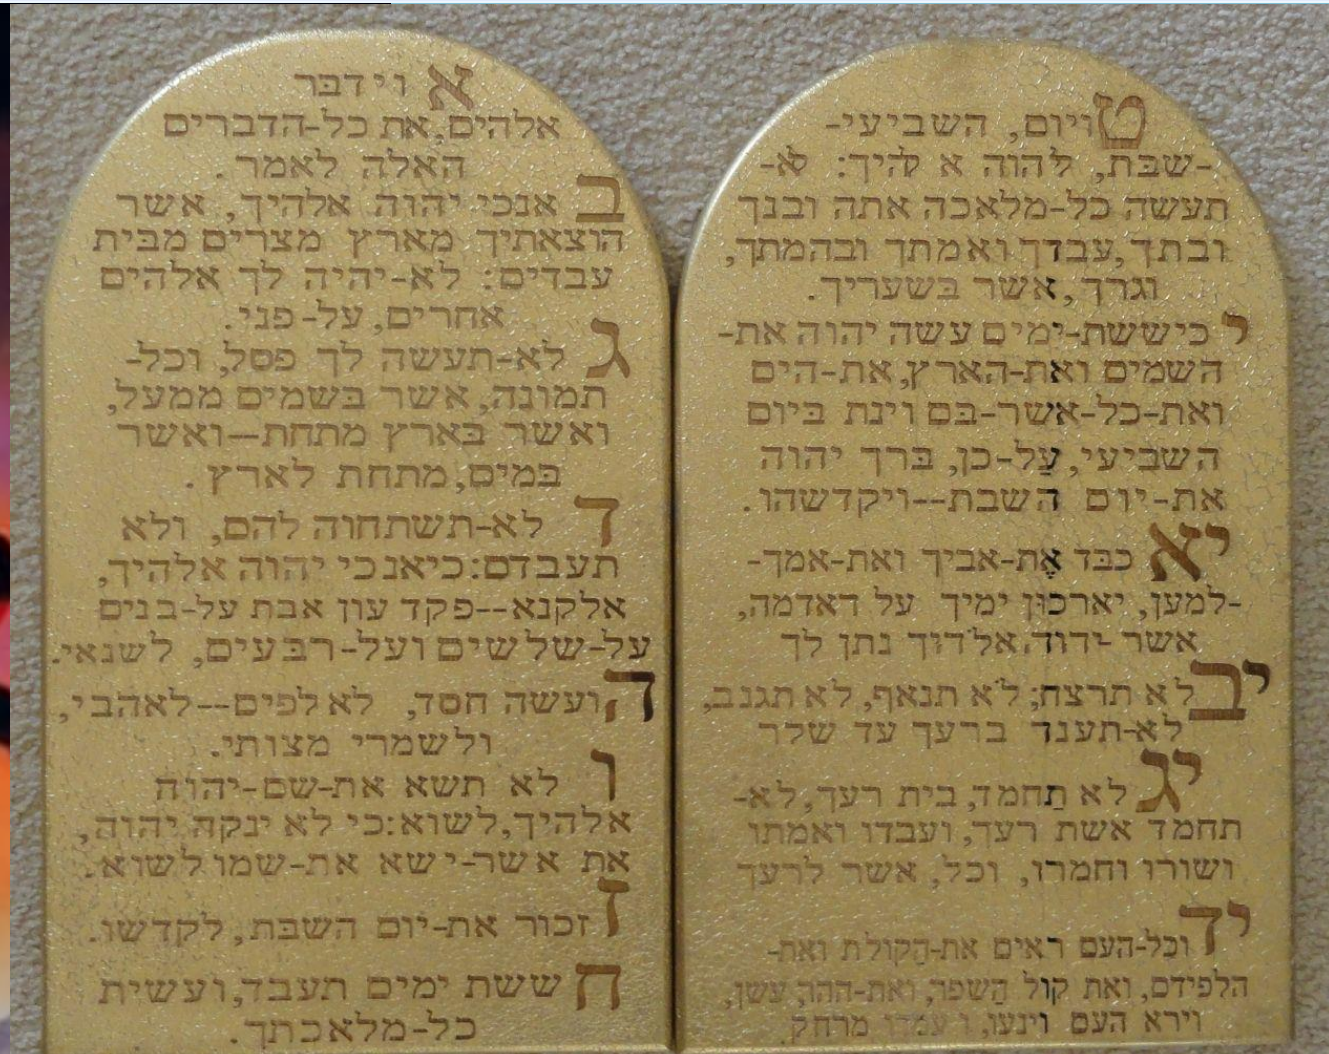 א וידבר
אלהים, את כל-הדברים
האלה לאמר.
ב אנכי יהוה אלהיך, אשר
הוצאתיך מארץ מצרים מבית
עבדים: לא-יהיה לך אלהים
אחרים, על-פני.
ג לא-תעשה לך פסל, וכל-
תמונה, אשר בשמים ממעל,
ואשר בארץ מתחת--ואשר
במים, מתחת לארץ.
ד לא-תשתחוה להם, ולא
תעבדם: כיאנכי יהוה אלהיך,
אלקנא--פקד עון אבת על-בנים
על-שלשים ועל-רבעים, לשנאי.
ה ועשה חסד, לאלפים--לאהבי,
ולשמרי מצותי.
ו לא תשא את-שם-יהוה
אלהיך, לשוא: כי לא ינקה יהוה,
את אשר-ישא את-שמו לשוא.
ז זכור את-יום השבת, לקדשו.
ח ששת ימים תעבד, ועשית
כל-מלאכתך.
ט ויום, השביעי-
-שבת, ליהוה א להיך: לא-
תעשה כל-מלאכה אתה ובנך
ובתך, עבדך ואמתך ובהמתך,
וגרך, אשר בשעריך.
י כיששת-ימים עשה יהוה את-
השמים ואת-הארץ, את-הים
ואת-כל-אשר-בם וינת ביום
השביעי, עַל-כן, ברך יהוה
את-יום השבת--ויקדשהו.
יא כבד אֶת-אביך ואת-אמך-
-למען, יארכוּן ימיך על האדמה,
אשר יהוה אלהיך נתן לך
יב לא תרצח; לא תנאף, לא תגנב,
לא-תענד ברעך עד שלר
יג לא תַחמד, בית רעך, לא-
תחמד אשת רעך, ועבדו ואמתו
ושורו וחמרו, וכל, אשר לרעך
יד וכל-העם ראים את-הקולת ואת-
הלפידם, ואת קול הַשפר, ואת-ההר, עשן,
וירא העם וינעו, ויעמדו מרחק.